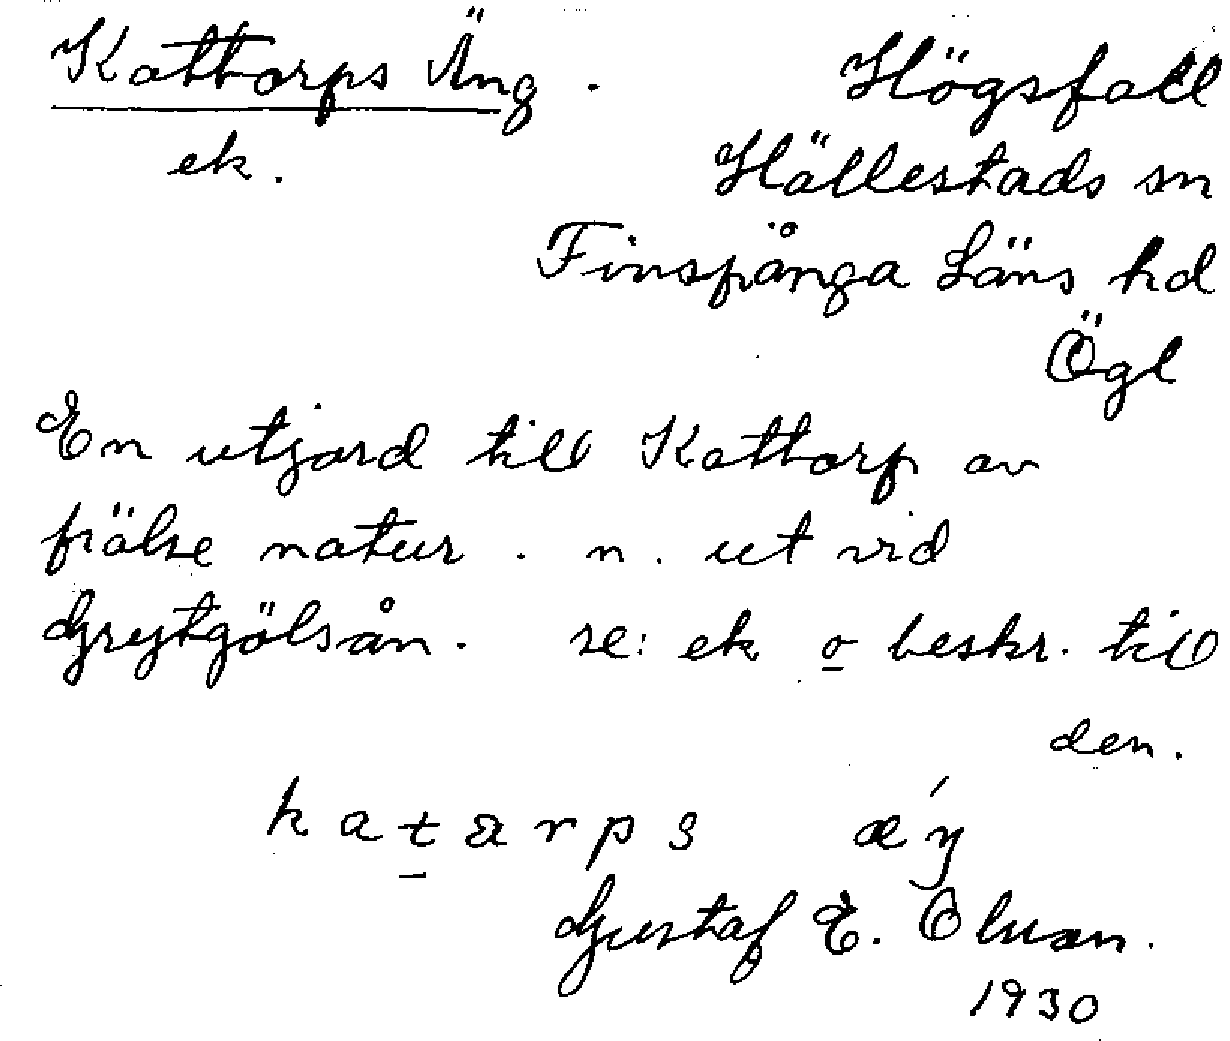 Kattorps Äng. Högsfall
ek. Hällestads sn
Finspånga Läns hd
Ögl
En utjord till Kattorp av
frälse natur. n. ut vid
Grytgölsån. se: ek o beskr. till
den.
katarps æŋ
Gustaf E. Olsson.
1930